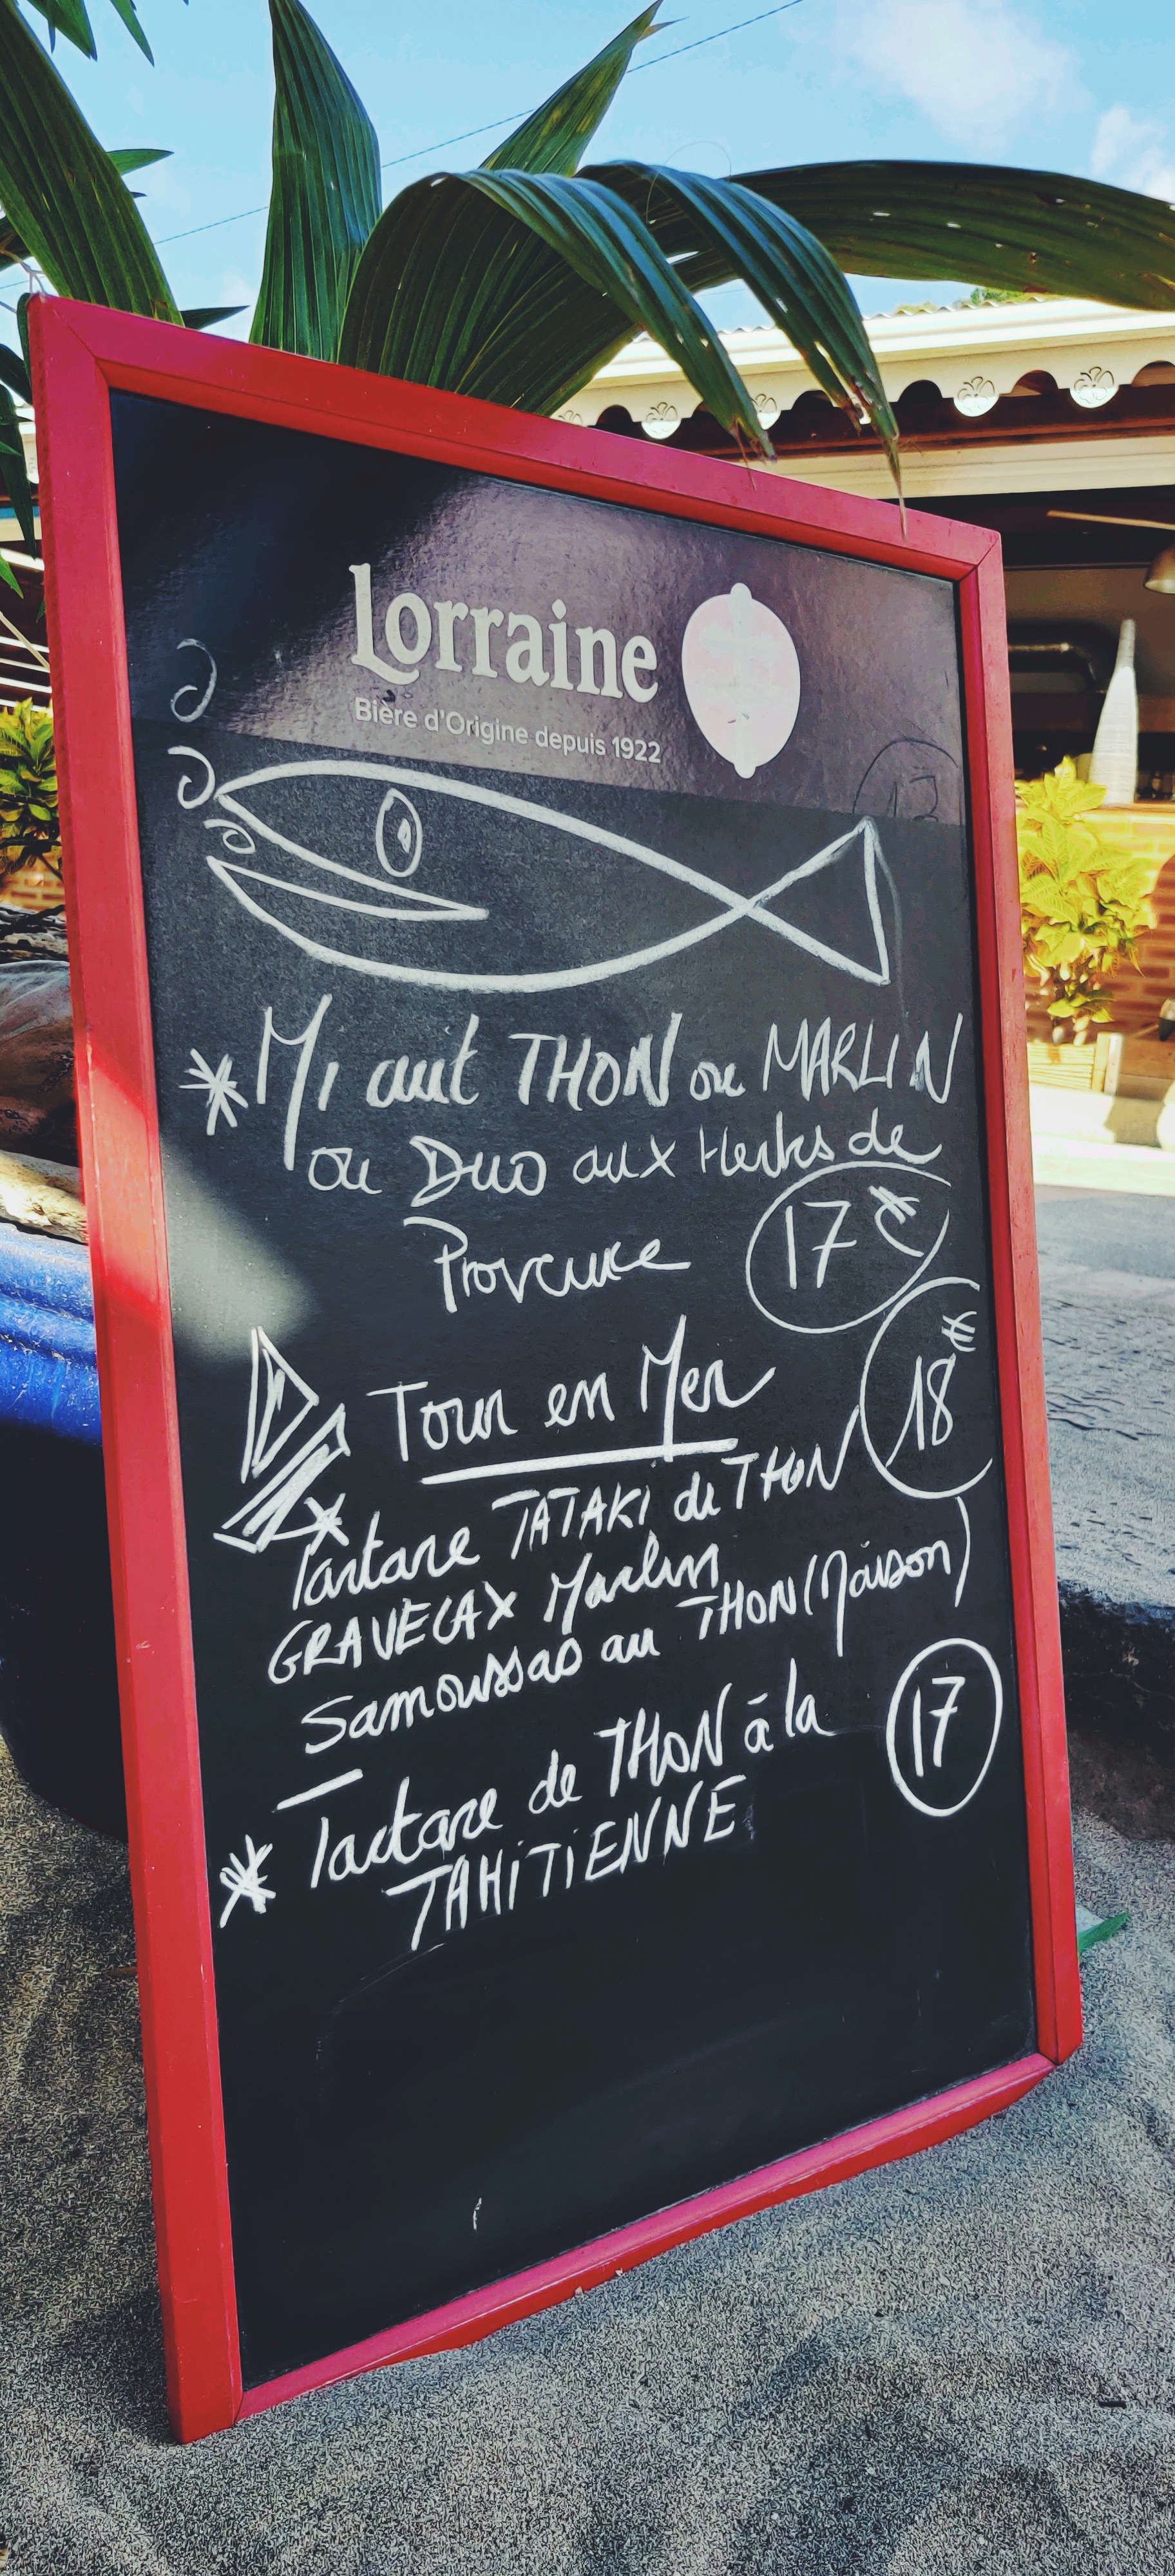 Lorraine
Bière d'Origine depuis 1922
Mi cuit THON ou MARLIN
ou Duo aux Herbes de
Provence 17€
Tour en Mer 18€
Tartare TATAKI de THON
GRAVELAX Marlin
Samoussas au THON (Maison)
Tartare de THON à la 17
TAHiTiENNE